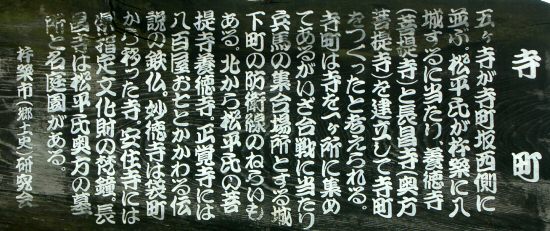 寺町
五ヶ寺が寺町坂西側に
並ぶ。松平氏が杵築に入
城するに当たり、養徳寺
(菩提寺)と長昌寺(奥方
菩提寺)を建立して寺町
をつくったと考えられる。
寺町は寺を一ヶ所に集め
てあるがいざ合戦に当たり
兵馬の集合場所とする城
下町の防衛線のねらいも
ある。北から松平氏の菩
提寺養徳寺、正覚寺には
八百屋おとととかかわる伝
説の鉄仏。妙徳寺は袋町
から移った寺、安住寺には
県指定文化財の梵鐘、長
昌寺は松平氏奥方の墓
所と名庭園がある。
杵築市(郷土史)研究会